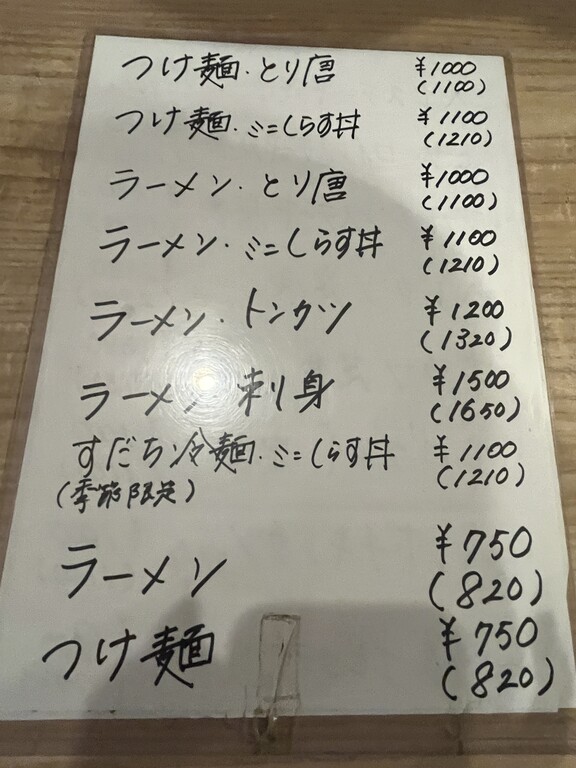 つけ麺・とり唐 ¥1000
(1100)
つけ麺・ミニしらす丼 ¥1100
(1210)
ラーメン・とり唐 ¥1000
(1100)
ラーメン・ミニしらす丼 ¥1100
(1210)
ラーメン・トンカツ ¥1200
(1320)
ラーメン 刺身 ¥1500
(1650)
すだち冷麺・ミニしらす丼 ¥1100
(季節限定) (1210)
ラーメン ¥750
(820)
つけ麺 ¥750
(820)